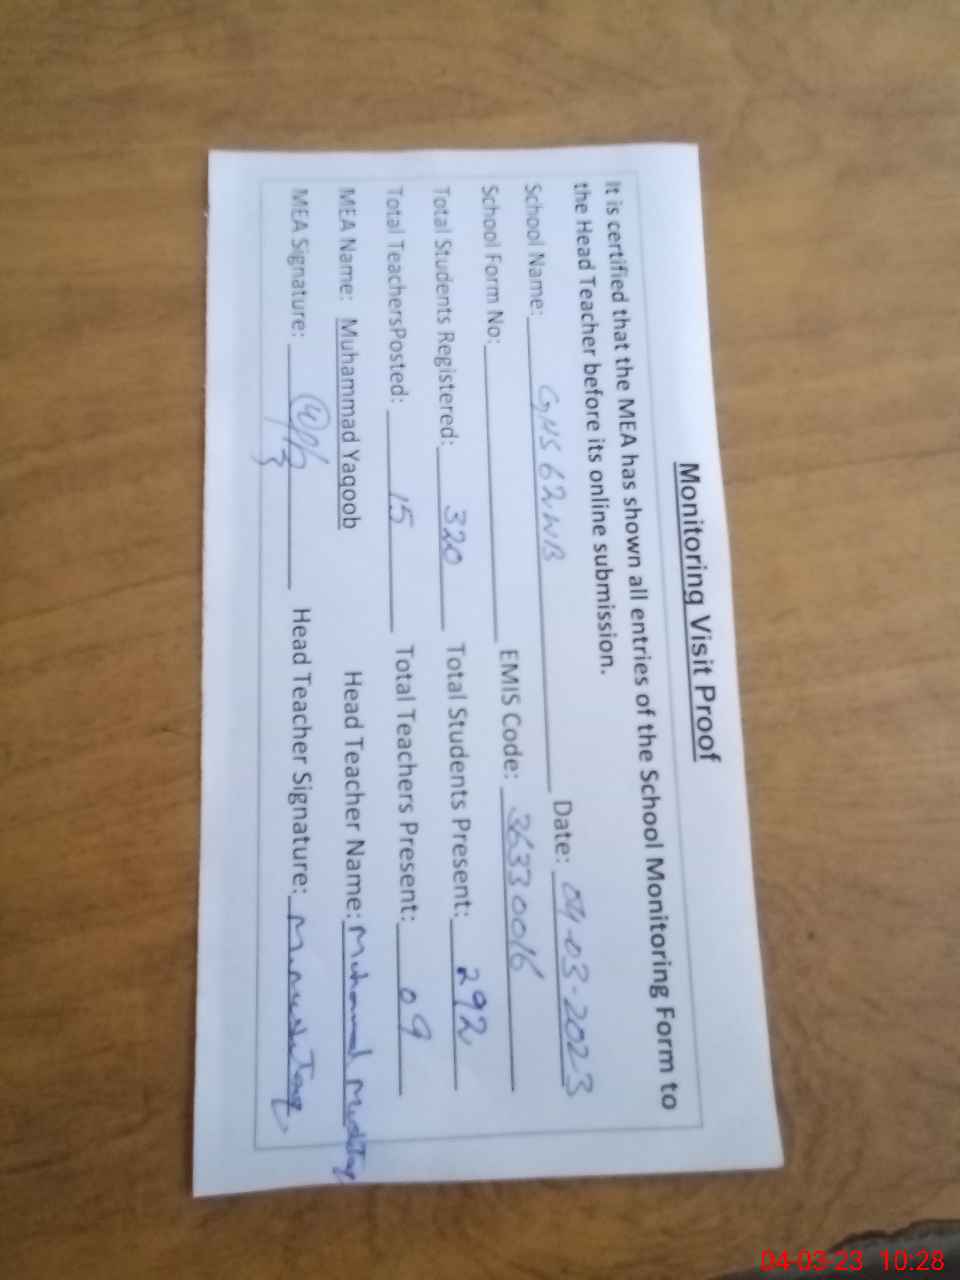 Monitoring Visit Proof
It is certified that the MEA has shown all entries of the School Monitoring Form to
the Head Teacher before its online submission.
School Name: GHS 62 WB Date: 04-03-2023
School Form No: EMIS Code: 36330016
Total Students Registered: 320 Total Students Present: 292
Total TeachersPosted: 15 Total Teachers Present: 09
MEA Name: Muhammad Yaqoob Head Teacher Name: Muhammad Mushtaq
MEA Signature: Head Teacher Signature:
04-03-23 10:28